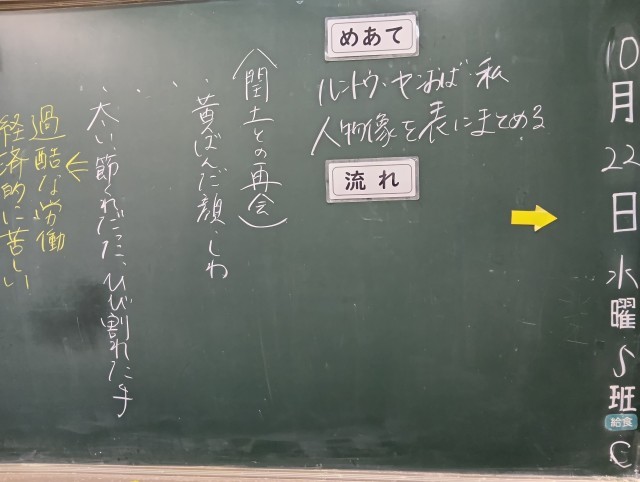 10月22日水曜5班
給食
C
めあて
ルントウ・ヤンおば・私
人物像を表にまとめる
流れ
(閏土との再会)
・黄ばんだ顔・しわ
・太い、節くれだった、ひび割れた手
過酷な労働
経済的に苦しい